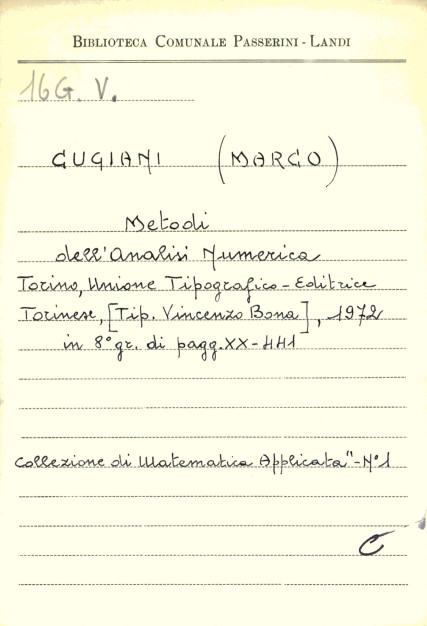 BIBLIOTECA COMUNALE PASSERINI - LANDI
16 G. V.
CUGIANI (MARCO)
Metodi
dell'Analisi Numerica
Torino, Unione Tipografico-Editrice
Torinese, [Tip. Vincenzo Bona], 1972
in 8° gr. di pagg. XX-441
Collezione di Matematica Applicata"-N°1
C